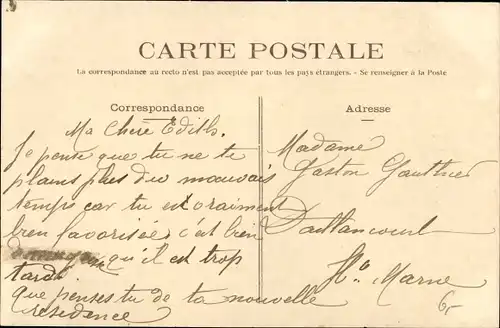 CARTE POSTALE
La correspondance au recto n'est pas acceptée par tous les pays étrangers. - Se renseigner à la Poste
Correspondance
Ma Chère Edith.
Je pense que tu ne te
plains plus du mauvais
temps car tu es vraiment
bien favorisée c'est bien
qu'il est trop
tard.
Que penses tu de ta nouvelle
résidence
Adresse
Madame
Gaston Gauthier
Daillancourt
Hte Marne
6,-